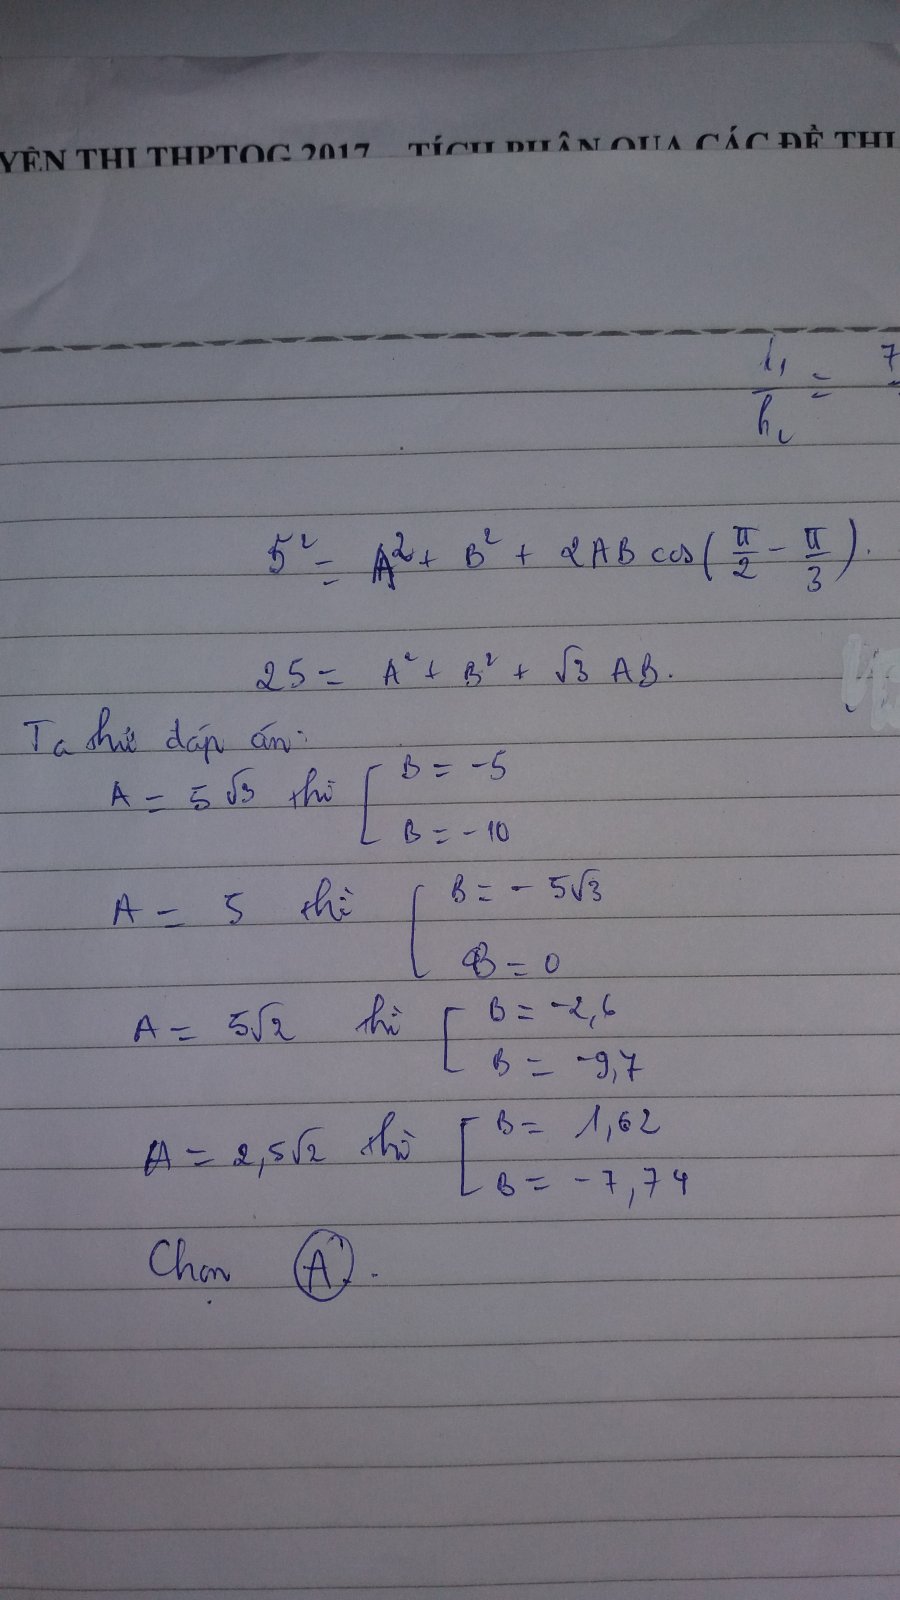 YỆN THI THPTQG 2017 TÍCH PHÂN QUA CÁC ĐỀ THI
l₁/h₂ = 7
5² = A² + B² + 2AB cos(π/2 - π/3).
25 = A² + B² + √3 AB.
Ta thử đáp án:
A = 5√3 thì [ B = -5
B = -10
A = 5 thì [ B = - 5√3
B = 0
A = 5√2 thì [ B = -2,6
B = -9,7
A = 2,5√2 thì [ B = 1,62
B = -7,74
Chọn A.